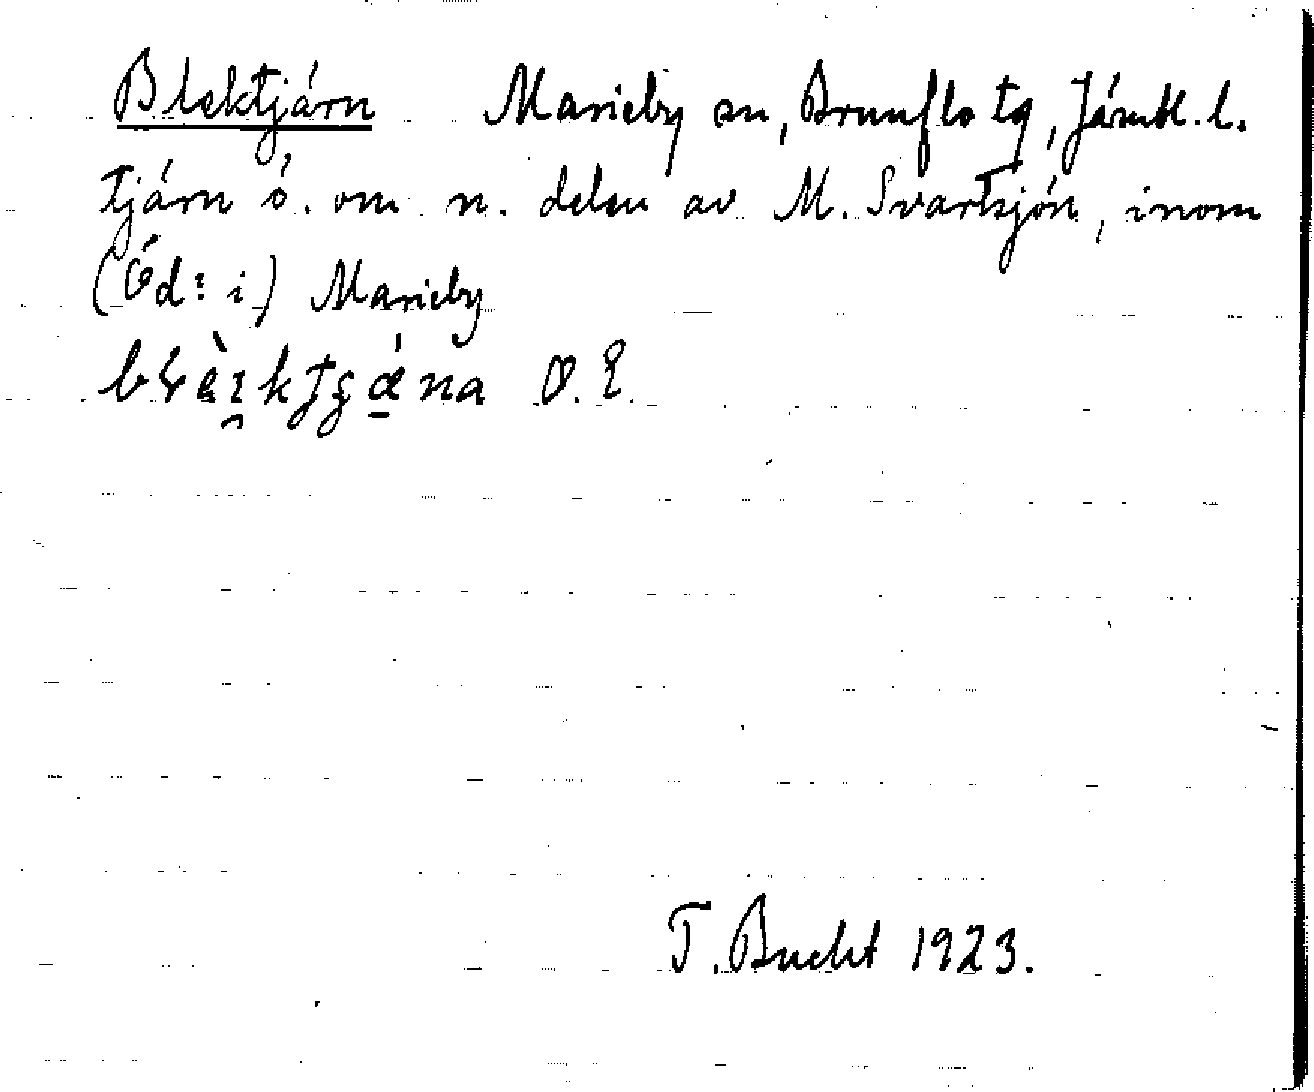 Blektjärn Marieby sn, Brunflo tg, Jämtl. l.
tjärn ö. om n. delen av M. Svartsjön, inom
Marieby
O. E.
T. Bucht 1923.